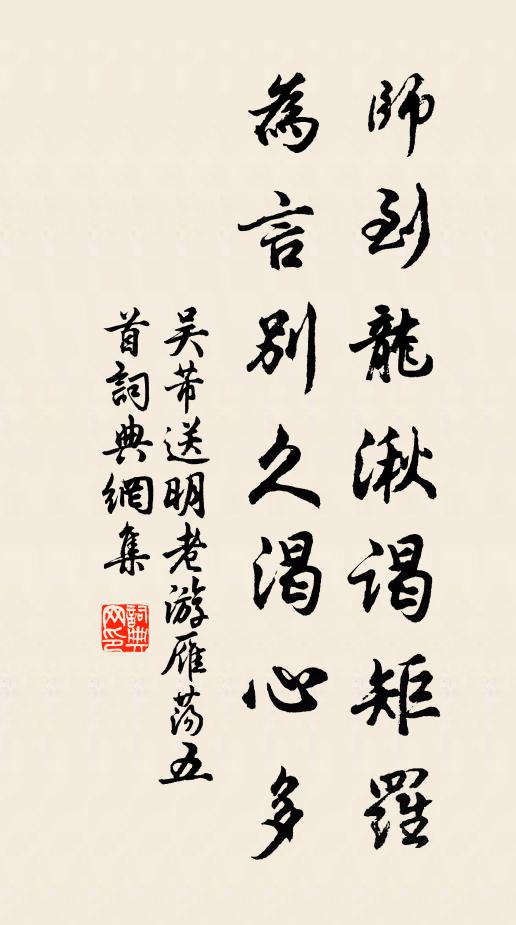 師到龍湫謁矩羅
為言別久渴心多
吴芾送明老游雁荡五
首詞典網集
詞典网印